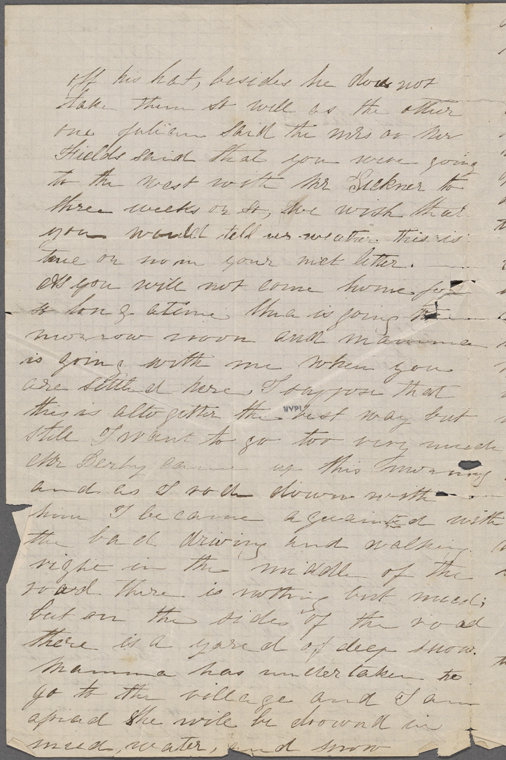 off his hat, besides he does not
take them so well as the other
one Julian said the mrs or her
Fields said that you were going
to the west with Mr Sickner to
three weeks or so, we wish that
you would tell us weather this is
true or no in your next letter.
As you will not come home for
so long a time is going
morrow noon and mamma
is going with me when you
are settled here, I suppose that
this is altogether the best way but
still I want to go too very much
Mr Derby came up this morning
and as I rode down with
him I became aquanted with
the bad driving and walking
right in the middle of the
road there is nothing but mud;
but on the sides of the road
there is a yared of deep snow.
Mamma has undertaken to
go to the village and I am
afraid she will be drownd in
mud, water, and snow
NYPL